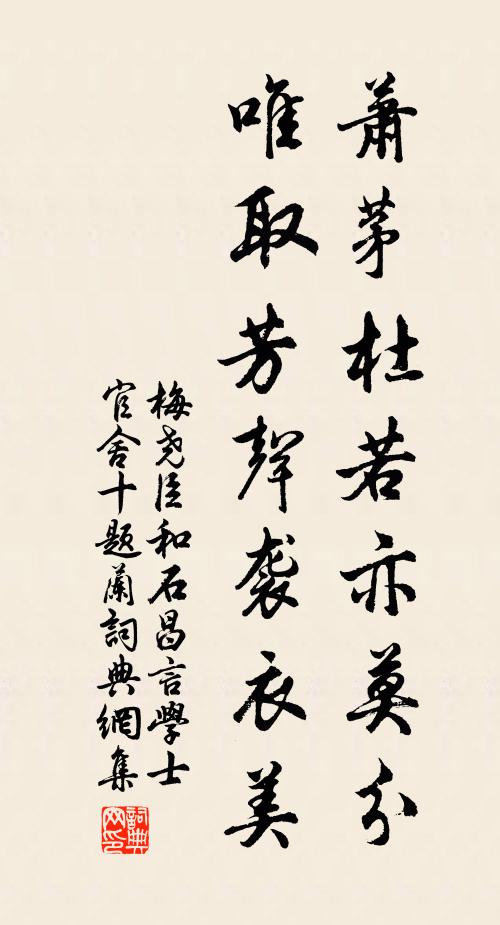 蕭茅杜若亦莫分
唯取芳聲襲衣美
梅堯臣和石昌言學士
官舍十題蘭詞典網集
詞典
网印